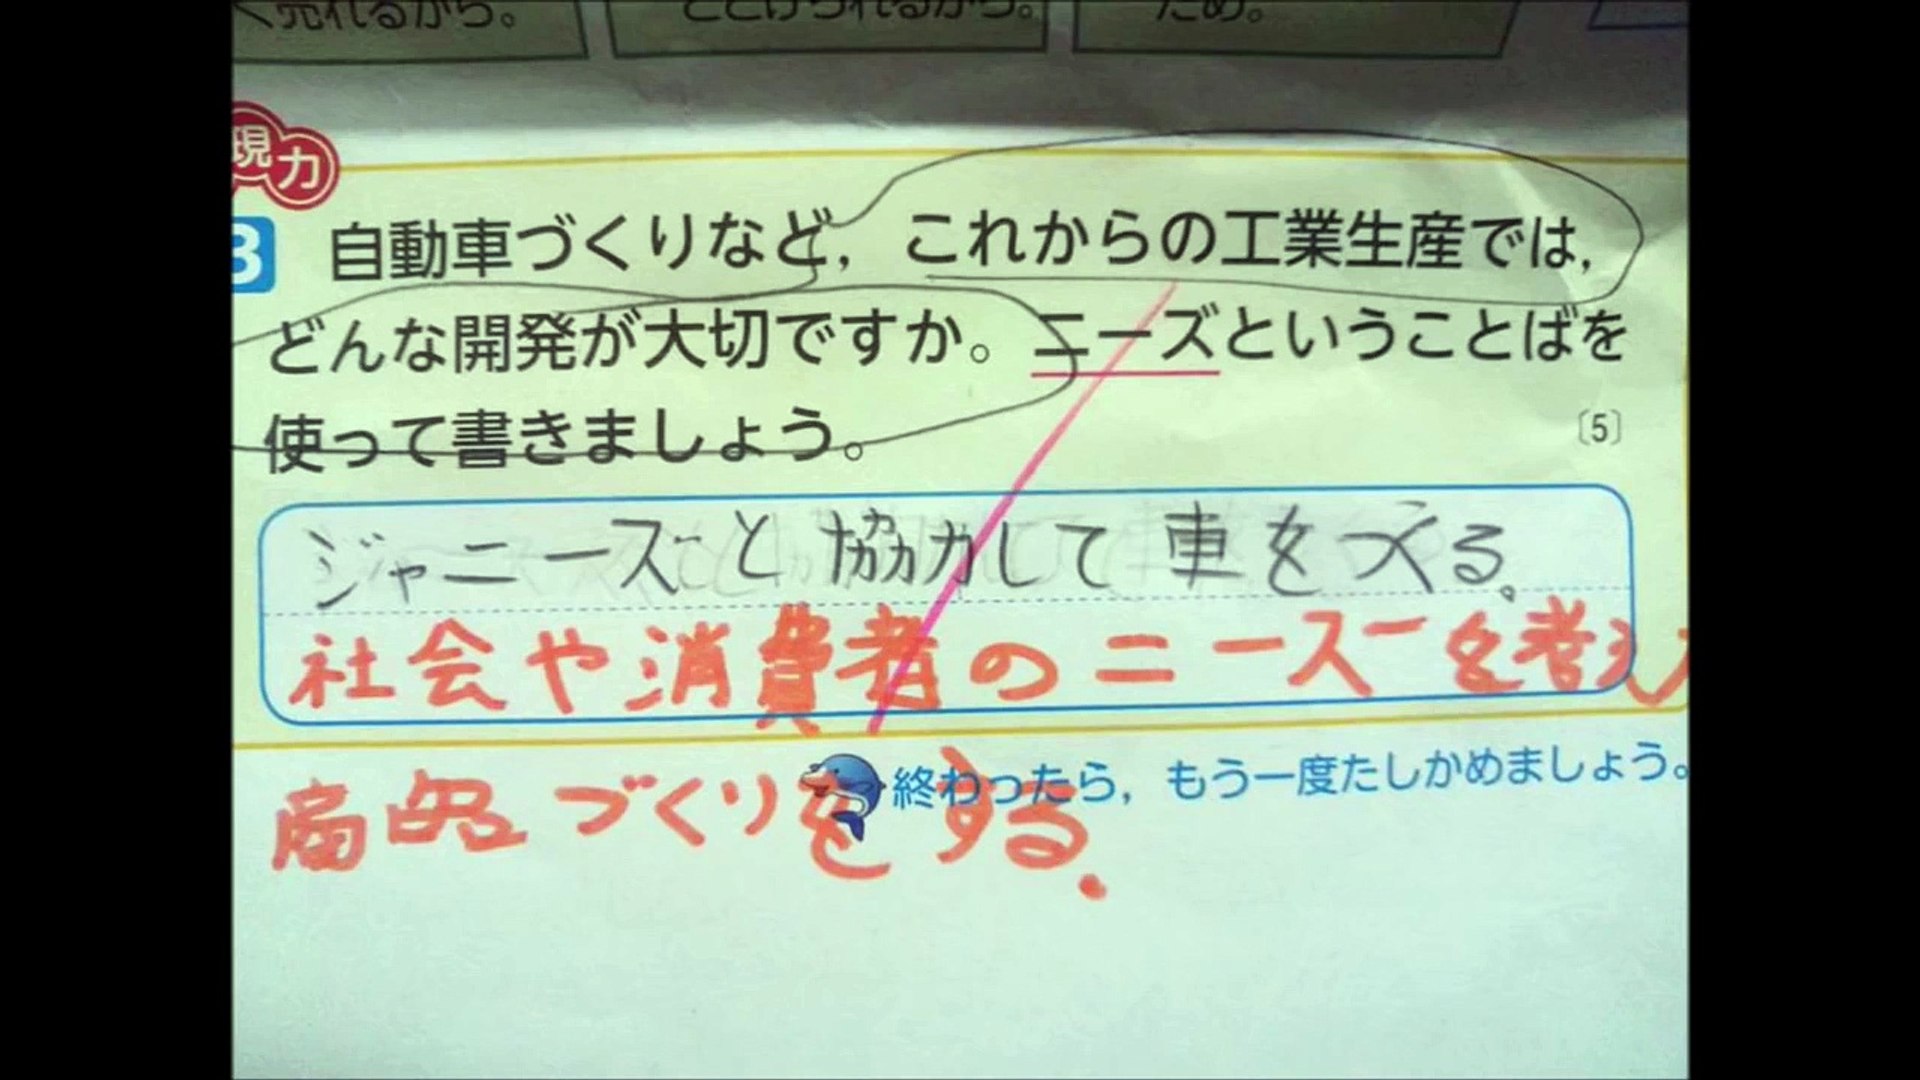 く売れるから。
とどけられるから。
ため。
現力
3 自動車づくりなど，これからの工業生産では，
どんな開発が大切ですか。ニーズということばを
使って書きましょう。
〔5〕
ジャニーズと協力して車をつくる。
社会や消費者のニーズを考え
商品づくりをする。
終わったら，もう一度たしかめましょう。